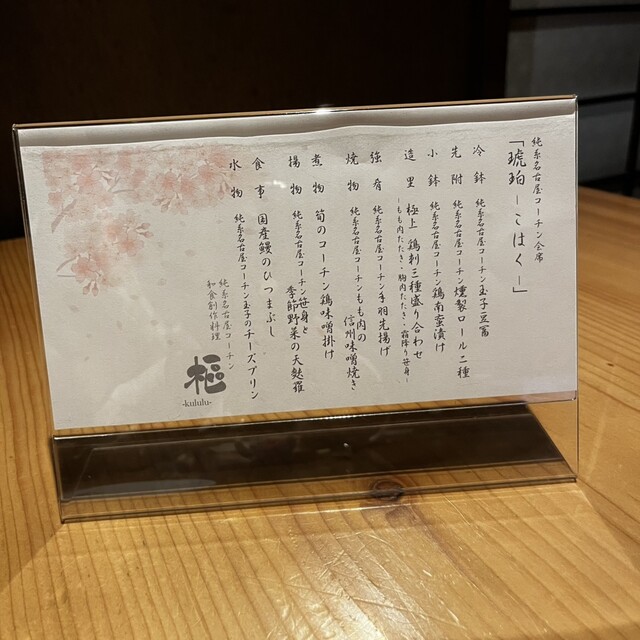 純系名古屋コーチン会席
「琥珀―こはく―」
冷鉢 純系名古屋コーチン玉子豆富
先附 純系名古屋コーチン燻製ロール二種
小鉢 純系名古屋コーチン鶏南蛮漬け
造里 極上 鶏刺三種盛り合わせ
―もも肉たたき・胸肉たたき・霜降り笹身―
強肴 純系名古屋コーチン手羽先揚げ
焼物 純系名古屋コーチンもも肉の
信州味噌焼き
煮物 筍のコーチン鶏味噌掛け
揚物 純系名古屋コーチン笹身と
季節野菜の天麩羅
食事 国産鰻のひつまぶし
水物 純系名古屋コーチン玉子のチーズプリン
純系名古屋コーチン
和食創作料理
枢
-kululu-